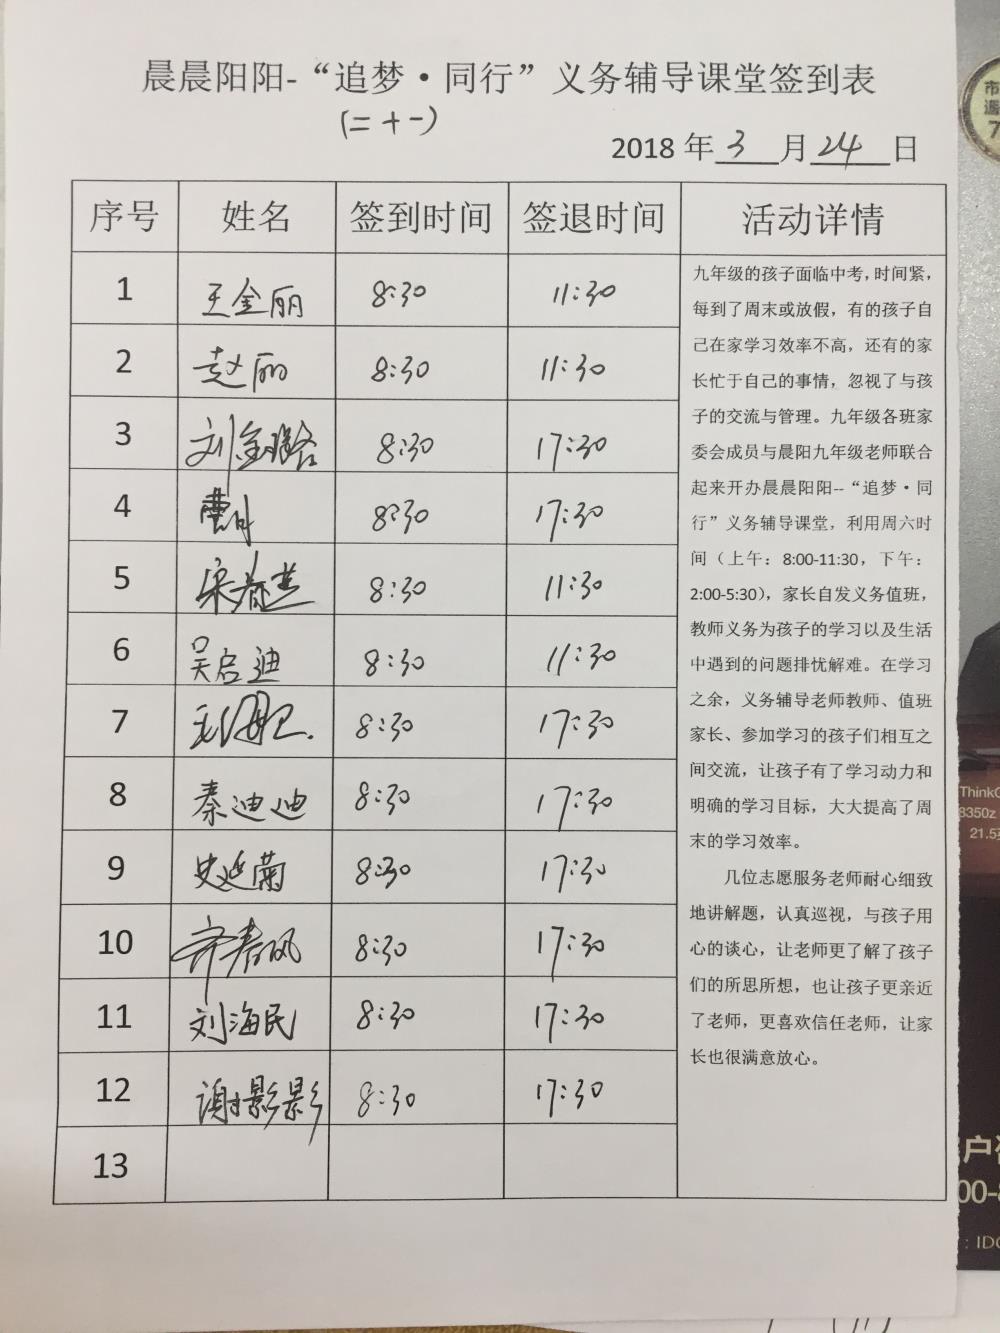 晨晨阳阳-“追梦·同行”义务辅导课堂签到表
(二十一)
2018 年 3 月 24 日
序号 姓名 签到时间 签退时间 活动详情
1 王金丽 8:30 11:30
2 赵丽 8:30 11:30
3 刘金璐 8:30 17:30
4 8:30 17:30
5 宋春燕 8:30 11:30
6 吴启迪 8:30 11:30
7 8:30 17:30
8 秦迪迪 8:30 17:30
9 史延菊 8:30 17:30
10 齐春风 8:30 17:30
11 刘海民 8:30 17:30
12 谢影影 8:30 17:30
13
九年级的孩子面临中考，时间紧，
每到了周末或放假，有的孩子自
己在家学习效率不高，还有的家
长忙于自己的事情，忽视了与孩
子的交流与管理。九年级各班家
委会成员与晨阳九年级老师联合
起来开办晨晨阳阳--“追梦·同
行”义务辅导课堂，利用周六时
间（上午：8:00-11:30，下午：
2:00-5:30），家长自发义务值班，
教师义务为孩子的学习以及生活
中遇到的问题排忧解难。在学习
之余，义务辅导老师教师、值班
家长、参加学习的孩子们相互之
间交流，让孩子有了学习动力和
明确的学习目标，大大提高了周
末的学习效率。
几位志愿服务老师耐心细致
地讲解题，认真巡视，与孩子用
心的谈心，让老师更了解了孩子
们的所思所想，也让孩子更亲近
了老师，更喜欢信任老师，让家
长也很满意放心。
市
7
ThinkC
8350z
21.5
户
00-8
: IDC